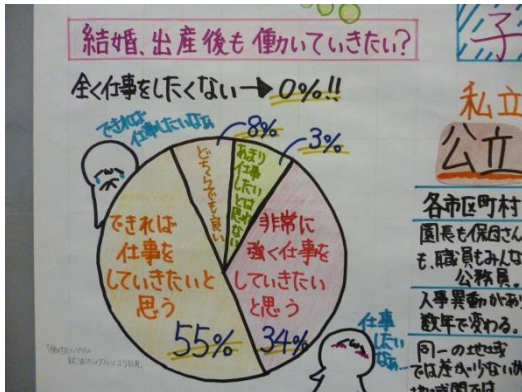 結婚、出産後も働いていきたい?
全く仕事をしたくない→0%!!
できれば
仕事したいなぁ
8%
3%
どちらでも良い
あまり
仕事
したいとは
思わない
できれば
仕事を
していきたいと
思う
55%
非常に
強く仕事を
していきたい
と思う
34%
仕事
したい
なぁ…
子
私立
公立
各市区町村
園長も保母さん
も、職員もみんな
公務員。
人事異動があり
数年で変わる。
同一の地域
では差が少ないが